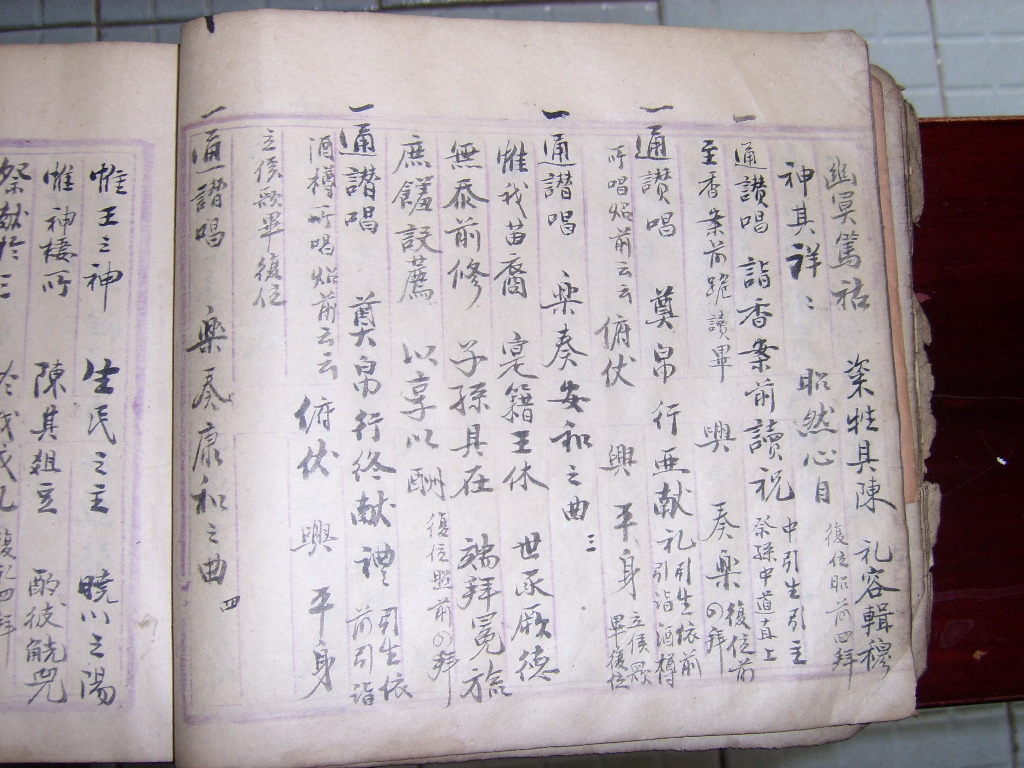 幽冥篤祐 粢牲具陳 礼容輯穆
神其祥〻 昭然心目 復位照前四拜
一通讃唱 詣香案前讀祝 中引生引主祭孫中道直上
至香案前跪讀畢 興 奏樂 復位前四拜
一通讃唱 奠帛 行亜献礼 引生依前引詣酒樽
所唱炤前云云 俯伏 興 平身 立俟歌畢復位
一通讃唱 楽奏安和之曲 三
惟我苗裔 寔籍王休 世承厥德
無忝前修 子孫具在 端拜冕旒
庶饈設薦 以享以酬 復位照前四拜
一通讃唱 奠帛行终献禮 引生依前引詣
酒樽所唱炤前云云 俯伏 興 平身
立俟歌畢復位
一通讃唱 楽奏康和之曲 四
惟王之神 生民之主 曉以之陽
惟神棲所 陳其俎豆 酌彼觥兕
祭献於三